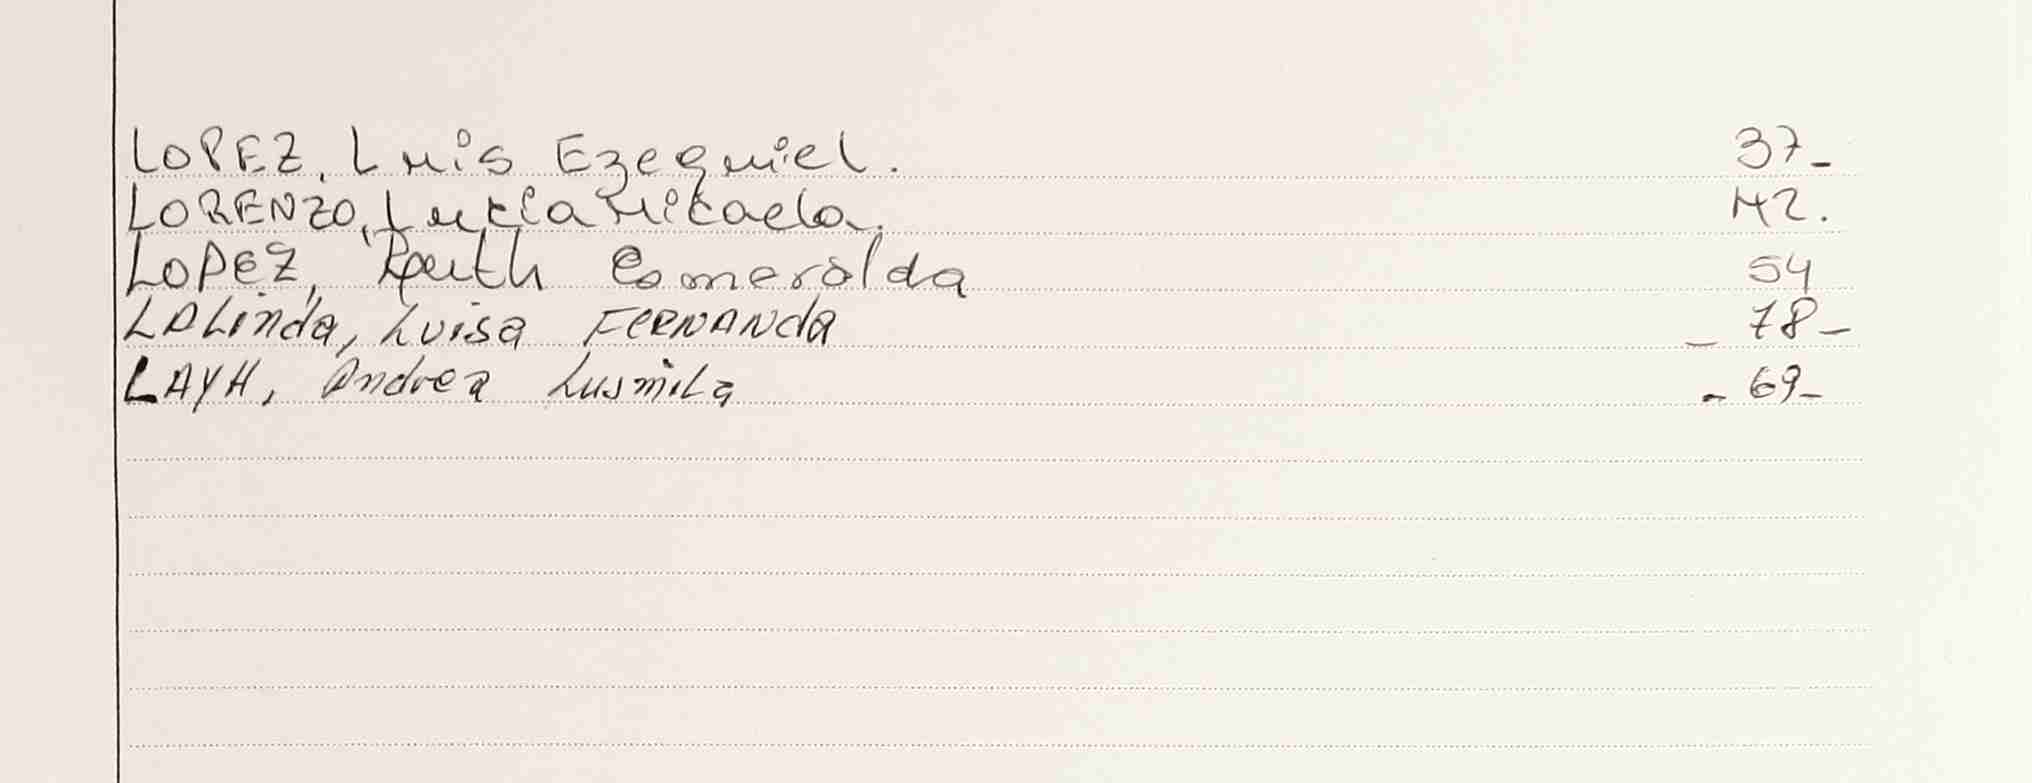 LOPEZ, Luis Ezequiel. 37-
LORENZO, Lucía Micaela. 42.
LOPEZ, Ruth Esmeralda 54
LALinda, Luisa FERNANda - 78-
LAYH, Andrea Lusmila - 69-